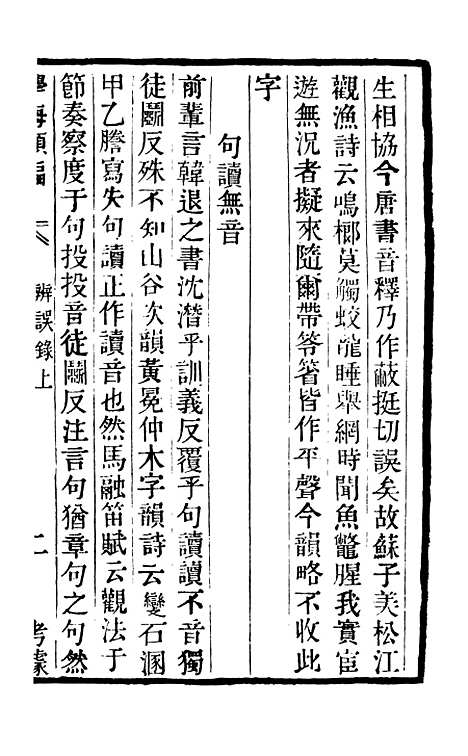 生相協今唐書音釋乃作蔽挺切誤矣故蘇子美松江
觀漁詩云鳴榔莫觸蛟龍睡舉網時聞魚鼈腥我實宦
遊無況者擬來隨爾帶笭箵皆作平聲今韻略不收此
字
句讀無音
前輩言韓退之書沈潛乎訓義反覆乎句讀讀不音獨
徒鬭反殊不知山谷次韻黃冕仲木字韻詩云變石溷
甲乙謄寫失句讀正作讀音也然馬融笛賦云觀法于
節奏察度于句投投音徒鬭反注言句猶章句之句然
學海類編
辨誤錄上
二
考據